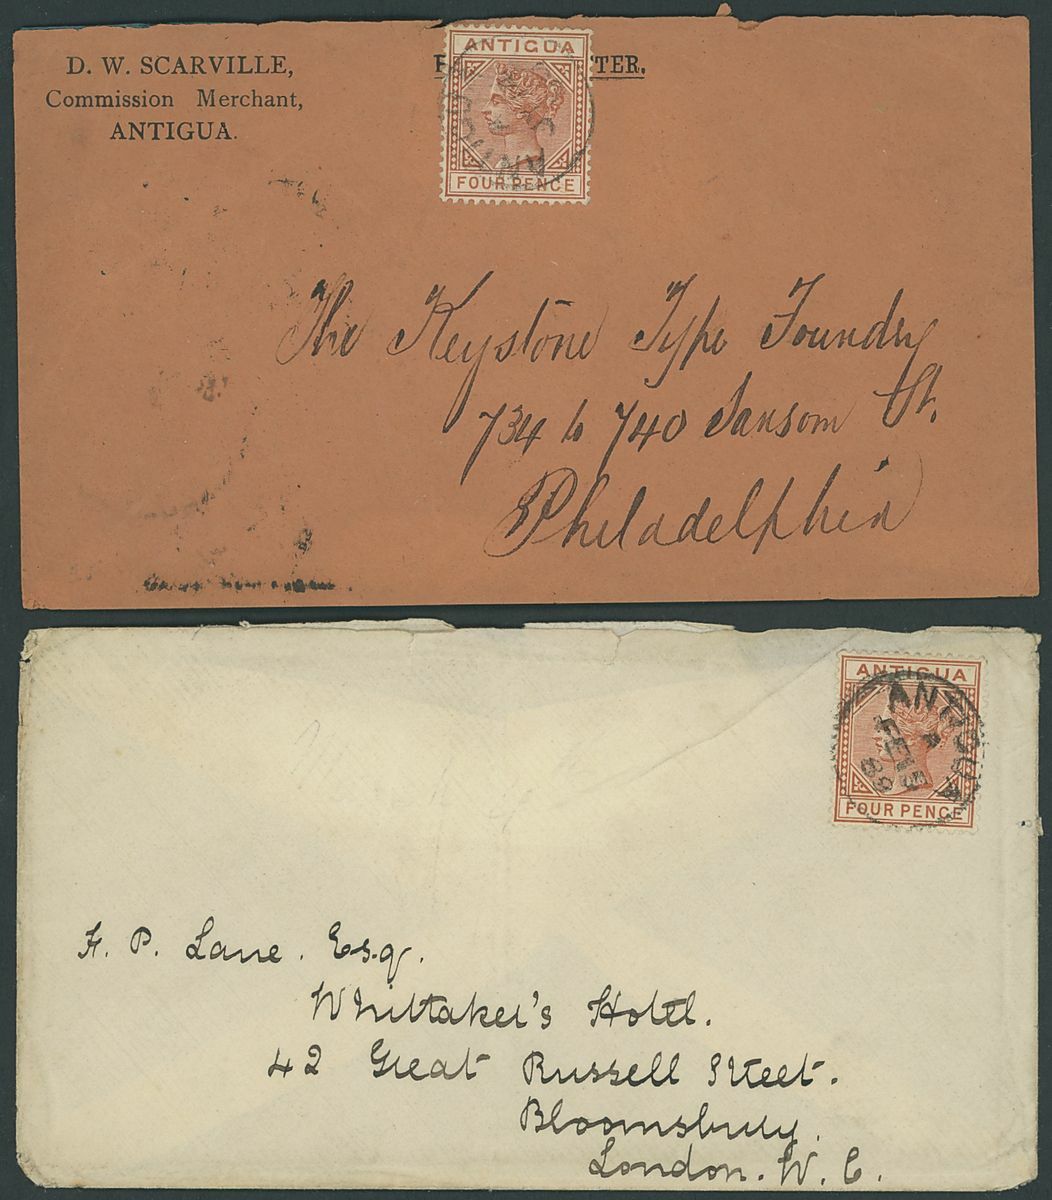 D. W. SCARVILLE,
Commission Merchant,
ANTIGUA.
TER.
ANTIGUA
FOUR PENCE
The Keystone Type Foundry
734 to 740 Sansom St.
Philadelphia
ANTIGUA
FOUR PENCE
ANTIGUA
A
FE
88
H. P. Lane. Esq.
Whittaker's Hotel.
42 Great Russell Street.
Bloomsbury.
London. W. C.